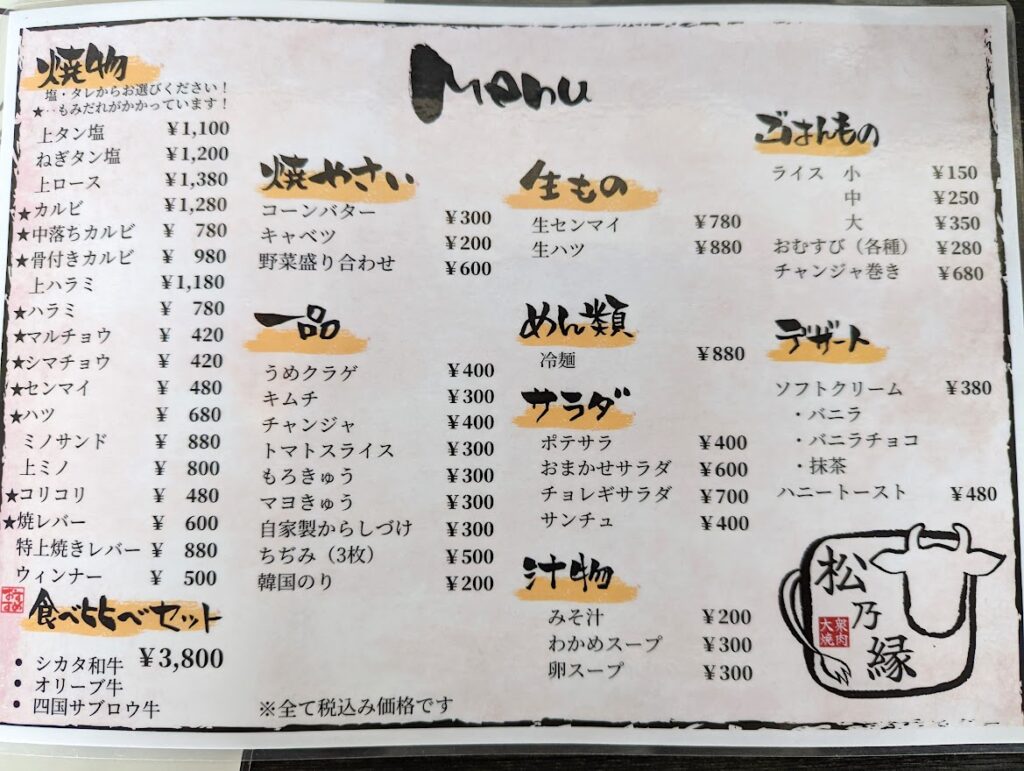 Menu
焼物
塩・タレからお選びください！
★‥もみだれがかかっています！
上タン塩 ¥1,100
ねぎタン塩 ¥1,200
上ロース ¥1,380
★カルビ ¥1,280
★中落ちカルビ ¥ 780
★骨付きカルビ ¥ 980
上ハラミ ¥1,180
★ハラミ ¥ 780
★マルチョウ ¥ 420
★シマチョウ ¥ 420
★センマイ ¥ 480
★ハツ ¥ 680
ミノサンド ¥ 880
上ミノ ¥ 800
★コリコリ ¥ 480
★焼レバー ¥ 600
特上焼きレバー ¥ 880
ウィンナー ¥ 500
おすすめ
食べ比べセット
¥3,800
・シカタ和牛
・オリーブ牛
・四国サブロウ牛
焼やさい
コーンバター ¥300
キャベツ ¥200
野菜盛り合わせ ¥600
一品
うめクラゲ ¥400
キムチ ¥300
チャンジャ ¥400
トマトスライス ¥300
もろきゅう ¥300
マヨきゅう ¥300
自家製からしづけ ¥300
ちぢみ（3枚） ¥500
韓国のり ¥200
※全て税込み価格です
生もの
生センマイ ¥780
生ハツ ¥880
めん類
冷麺 ¥880
サラダ
ポテサラ ¥400
おまかせサラダ ¥600
チョレギサラダ ¥700
サンチュ ¥400
汁物
みそ汁 ¥200
わかめスープ ¥300
卵スープ ¥300
ごはんもの
ライス 小 ¥150
中 ¥250
大 ¥350
おむすび（各種） ¥280
チャンジャ巻き ¥680
デザート
ソフトクリーム ¥380
・バニラ
・バニラチョコ
・抹茶
ハニートースト ¥480
松乃縁
大衆焼肉